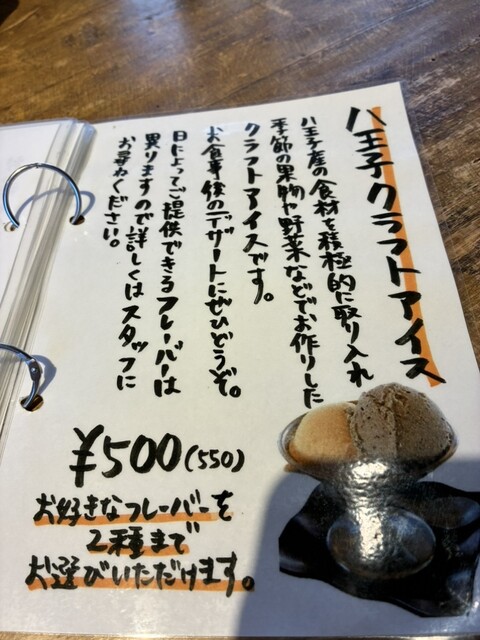 八王子クラフトアイス
八王子産の食材を積極的に取り入れ
季節の果物や野菜などでお作りした
クラフトアイスです。
お食事後のデザートにぜひどうぞ。
日によってご提供できるフレーバーは
異りますので詳しくはスタッフに
お尋ねください。
¥500(550)
お好きなフレーバーを
2種まで
お選びいただけます。